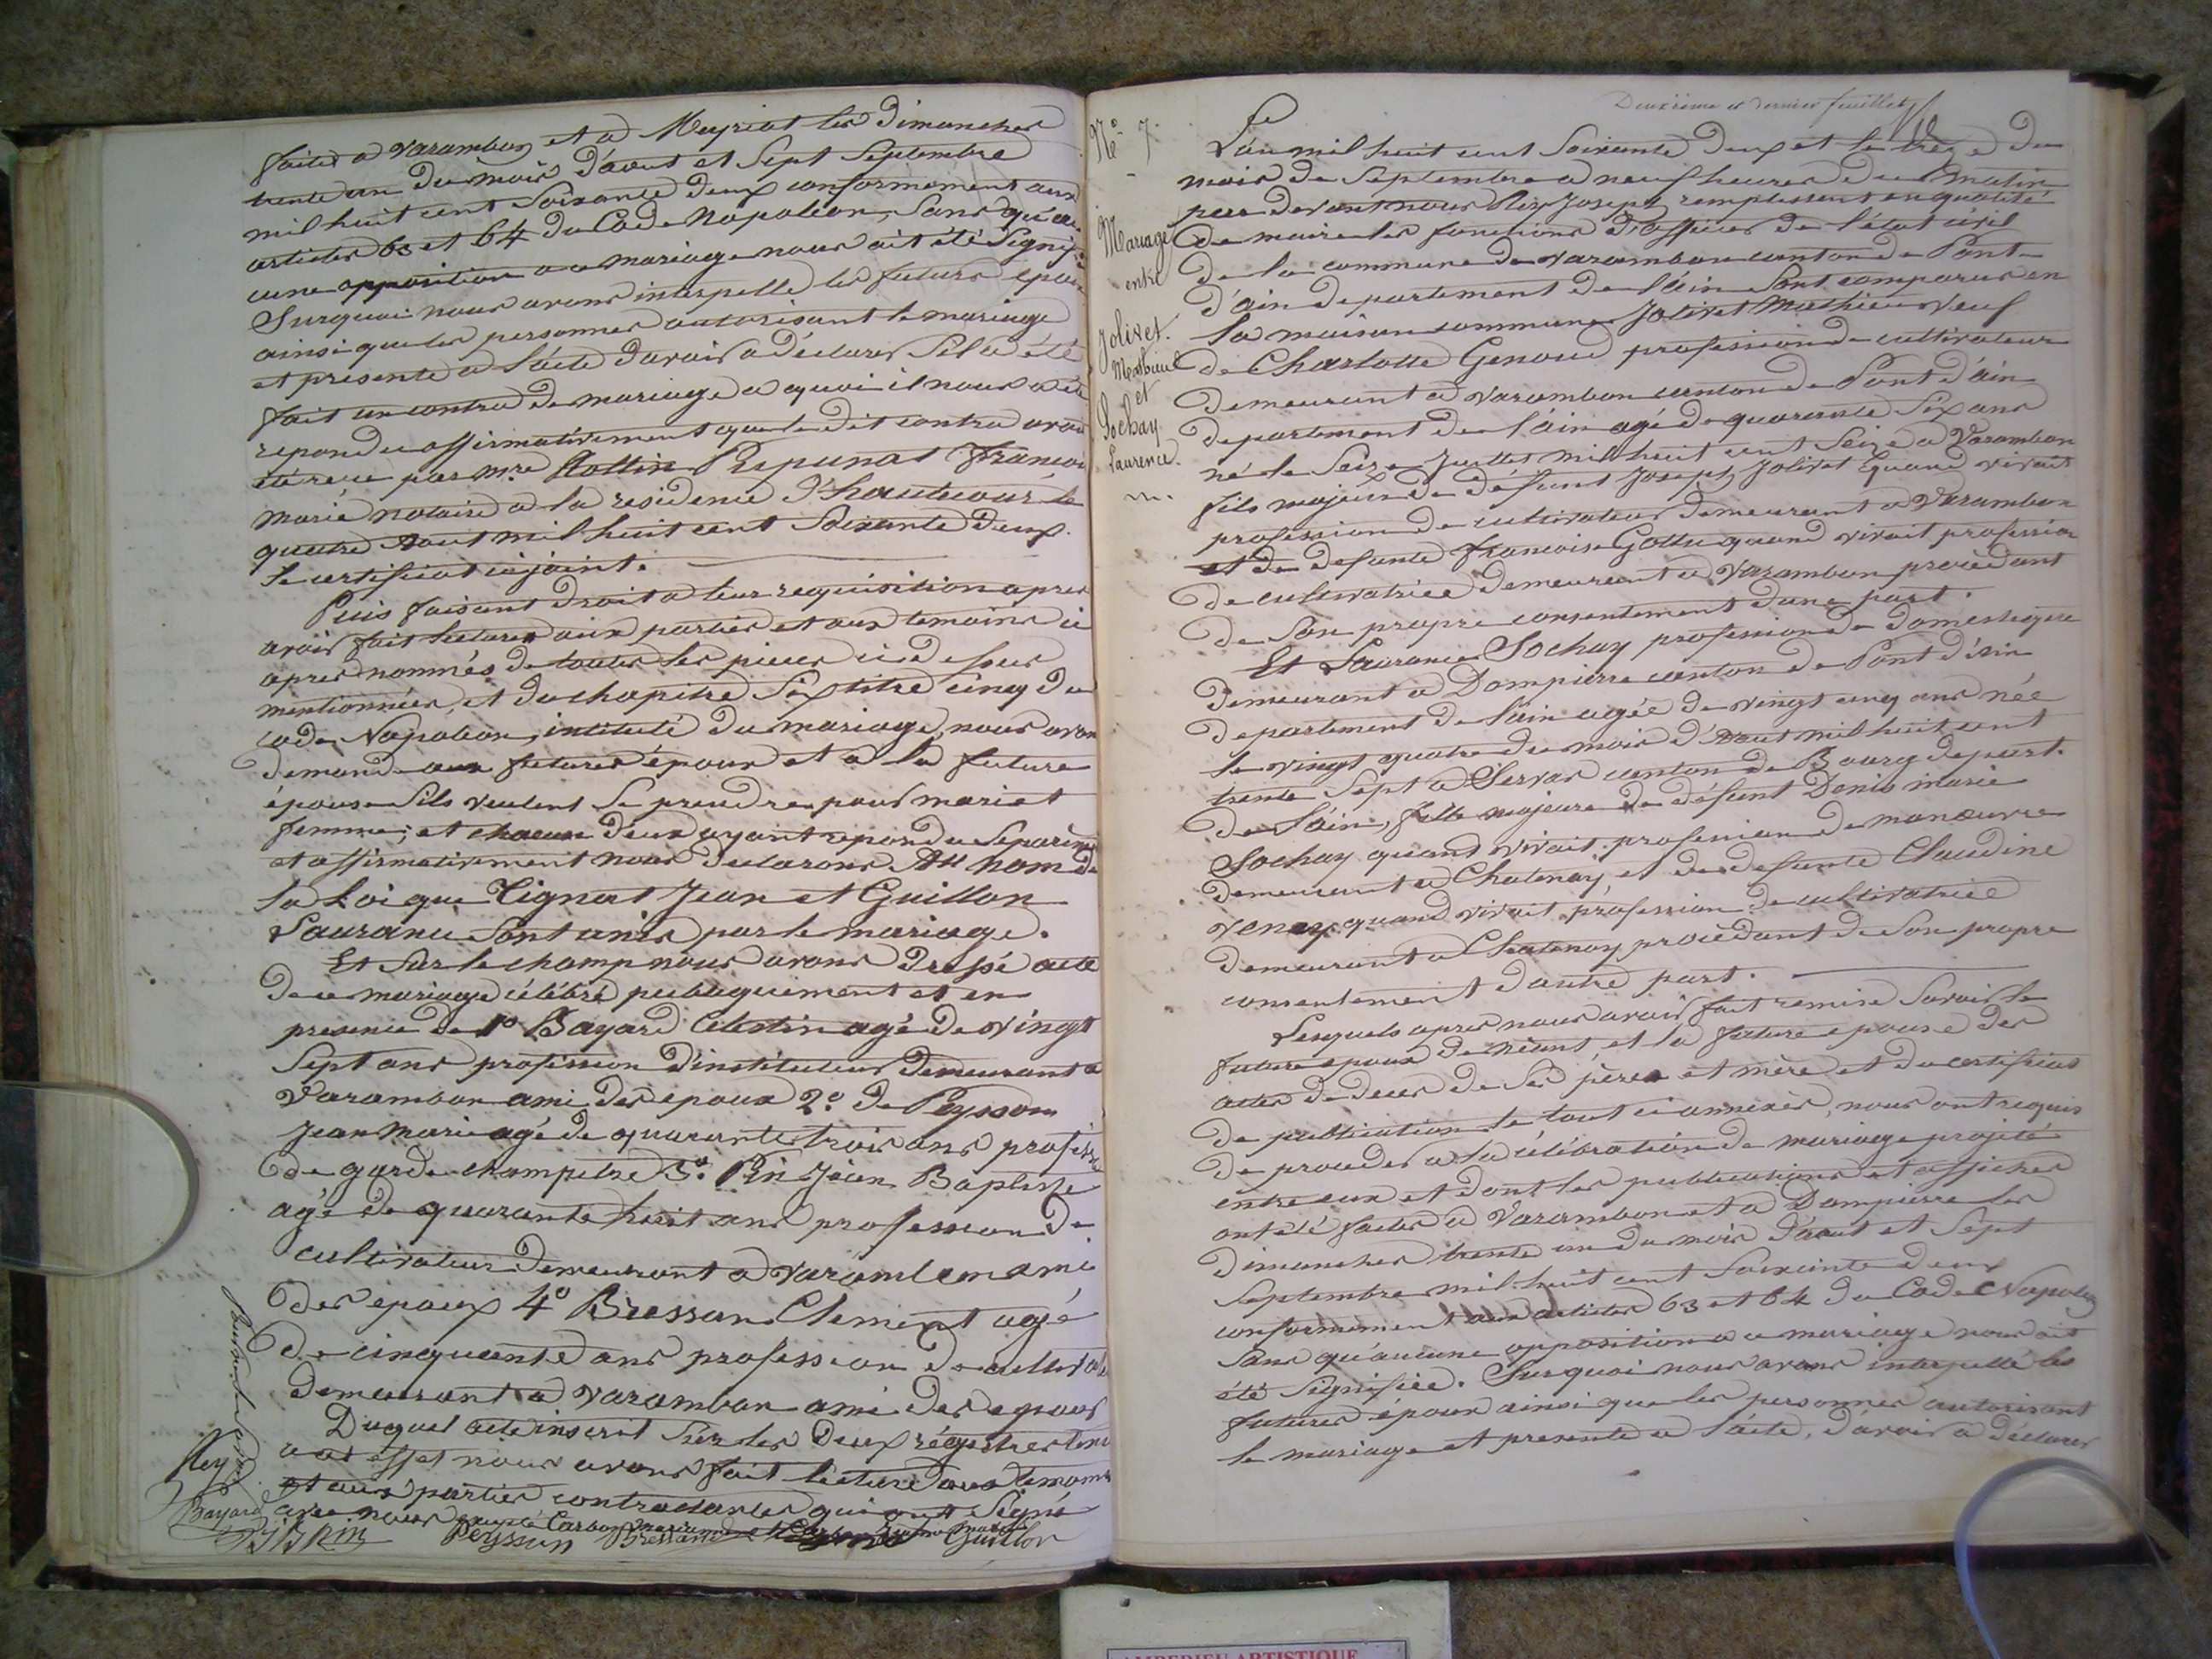 faites a varambon et a Meyriat les dimanches
trente un du mois d'aout et Sept Septembre
mil huit cent Soixante deux conformement aux
articles 63 et 64 du Code Napoléon, Sans qu'au
cune opposition a ce mariage nous ait été Signif
Surquoi nous avons interpellé les futurs epoux
ainsi que les personnes autorisant le mariage
et présente a l'acte d'avoir a déclarer S'il a été
fait un contra de mariage a quoi il nous a été
repondu affirmativement que le dit contra avait
été recu par Mre Rollin François
Marie notaire a la residence d'hautecour le
quatre Aout mil huit cent Soixante deux.
le certificat cijoint.
Puis faisant droit a leur requisition apres
avoir fait lecture aux parties et aux temoins ci
apres nommés de toutes les pieces ci dessus
mentionnées, et du chapitre Six titre cinq du
code Napoléon, intitulé du mariage, nous avons
demandé aux futures époux et a la future
épouse S'ils veulent Se prendre pour mari et
femme; et chacun d'eux ayant repondu Séparèment
et affirmativement nous declarons Au nom de
la Loi que Tignat Jean et Guillon
Laurance Sont unis par le mariage.
Et Sur le champ nous avons dressé acte
de ce mariage célébré publiquement et en
presence de 1° Bayard Celestin agé de vingt
Sept ans profession d'instituteur demeurant a
Varambon ami des epoux 2° de Peysson
Jean Marie agé de quarante trois ans profession
de garde champetre 3° Pin Jean Baptiste
agé de quarante huit ans profession de
cultivateur demeurant a varambon ami
des epoux 4° Bressan Clement agé
de cinquante ans profession de cultivateur
demeurant a varambon ami des epoux
Duquel acte inscrit Sur les deux régistres tenu
a cet effet nous avons fait lecture aux temoins
et aux parties contractantes qui ont Signé
avec nous excepté
Rey
Bayard
Peysson Bressand Guillon
Deuxième et dernier feuillet
N° 7.
Mariage
entre
Jolivet
Mathieu
et
Sochay
Laurence.
L'an mil huit cent Soixante deux et le treize du
mois de Septembre a neuf heures du matin
par devant nous Rey Joseph remplissent en qualité
de maire les fonctions d'officier de l'état civil
de la commune de varambon canton de Pont-
d'ain departement de l'ain Sont comparus en
la maison commune Jolivet Mathieu veuf
de Charlotte Genoud profession de cultivateur
demeurant a varambon canton de Pont d'ain
departement de l'ain agé de quarante Six ans
né le Seize Juillet mil huit cent Seize a Varambon
fils majeur de défunt Joseph Jolivet quand vivait
profession de cultivateur demeurant a Varambon
et de defunte francoise Gottu quand vivait profession
de cultivatrice demeurant a Varambon procèdant
de Son propre consentement d'une part.
Et Laurance Sochay profession de domestique
demeurant a Dompierre canton de Pont d'ain
departement de l'ain agée de vingt cinq ans née
le vingt quatre du mois d'Aout mil huit cent
trente Sept a Servas canton de Bourg depart.
de l'ain, fille majeure de défunt Denis marie
Sochay quand vivait profession de manœuvre
demeurant a Chatenay, et de defunte Claudine
Venay quand vivait profession de cultivatrice
demeurant a Chatenay, procèdant de Son propre
consentement d'autre part.
Lesquels apres nous avoir fait remise Savoir le
future epoux de néant, et la future epouse des
actes de deces de Ses père et mère et du certificat
de publication le tout ci annexès, nous ont requis
de proceder a la célébration de mariage projeté
entre eux et dont les publications et affiches
ont été faites a Varambon et a Dompierre les
dimanches trente un du mois d'aout et Sept
Septembre mil huit cent Soixante deux
conformement aux articles 63 et 64 du Code Napoléon
Sans qu'aucune opposition a ce mariage nous ait
été Signifiée. Surquoi nous avons interpellé les
futures époux ainsi que les personnes autorisant
le mariage et presente a l'acte, d'avoir a déclarer
AMBERIEU ARTISTIQUE